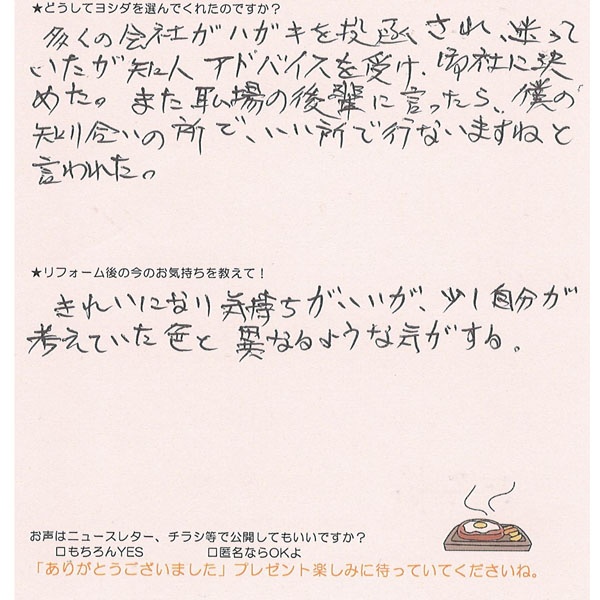 ★どうしてヨシダを選んでくれたのですか？
多くの会社がハガキを投函され、迷って
いたが知人アドバイスを受け、御社に決
めた。また職場の後輩に言ったら、僕の
知り合いの所で、いい所で行ないますねと
言われた。
★リフォーム後の今のお気持ちを教えて！
きれいになり気持ちがいいが、少し自分が
考えていた色と異なるような気がする。
お声はニュースレター、チラシ等で公開してもいいですか？
□もちろんYES　□匿名ならOKよ
「ありがとうございました」プレゼント楽しみに待っていてくださいね。